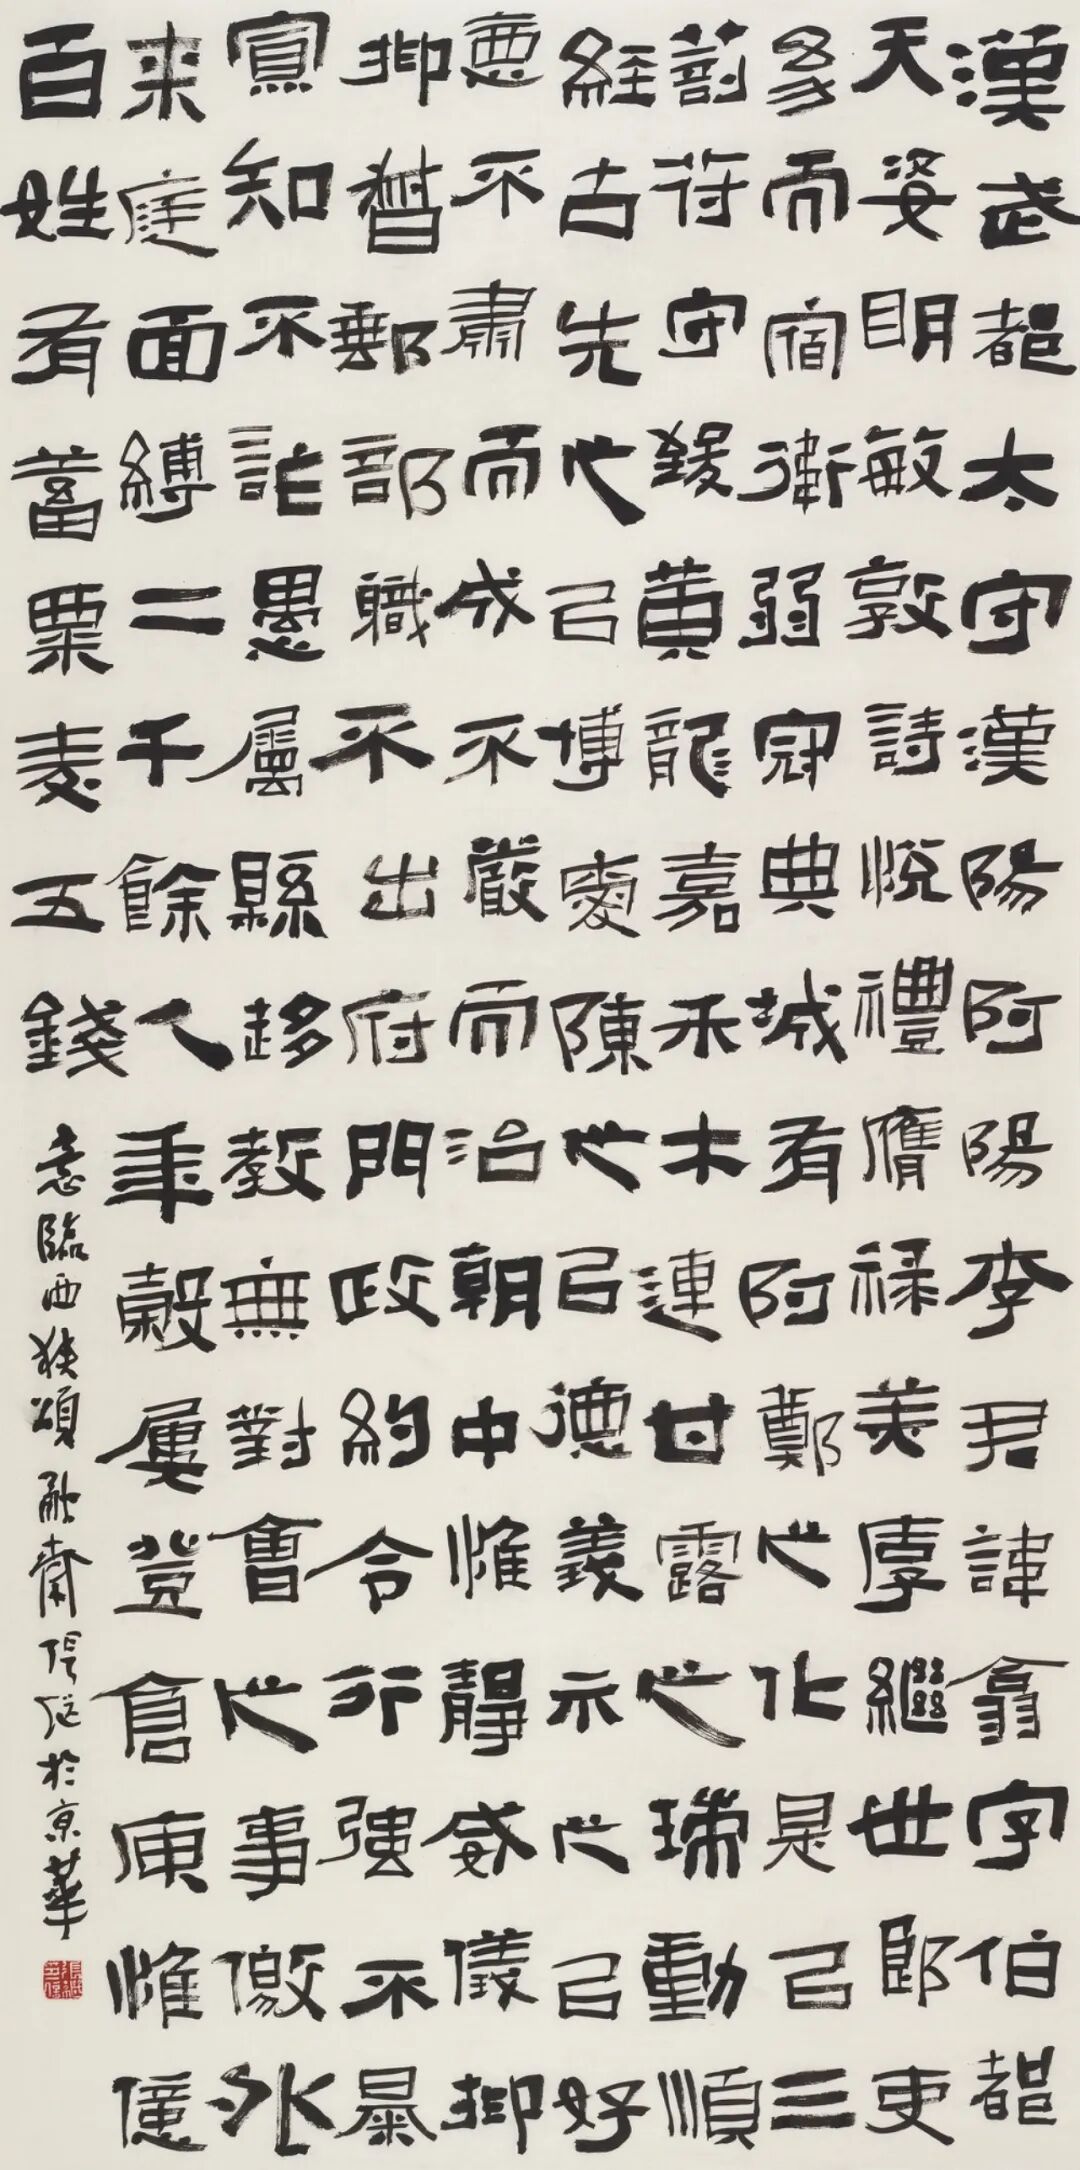 漢武都太守漢陽阿陽李君諱翕字伯都
天姿明敏敦詩悅禮膺祿美厚繼世郎吏
幼而宿衛弱冠典城有阿鄭之化是㠯三
剖符守致黃龍嘉禾木連甘露之瑞動順
經古先之㠯博愛陳之㠯德義示之㠯好
惡不肅而成不嚴而治朝中惟靜威儀抑
抑督郵部職不出府門政約令行强不暴
寡知不詐愚屬縣趍教無對會之事徼外
来庭面縛二千餘人年穀屢登倉庾惟億
百姓有蓄粟麦五錢
意臨西狹頌融齋張継於京華